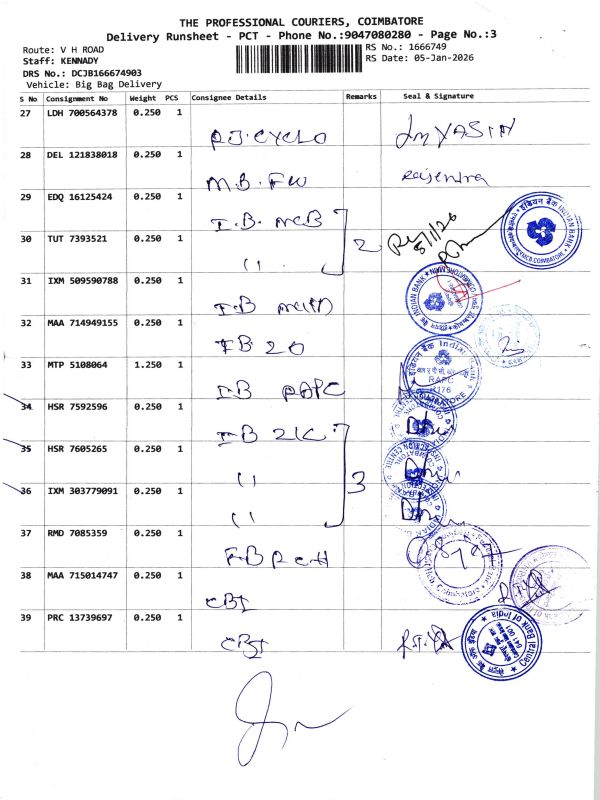 THE PROFESSIONAL COURIERS, COIMBATORE
Delivery Runsheet - PCT - Phone No.:9047080280 - Page No.:3
Route: V H ROAD
RS No.: 1666749
Staff: KENNADY
RS Date: 05-Jan-2026
DRS No.: DCJB166674903
Vehicle: Big Bag Delivery
S No Consignment No Weight PCS Consignee Details Remarks Seal & Signature
27 LDH 700564378 0.250 1
YASIN
28 DEL 121838018 0.250 1
M.B. FW Rajendra
29 EDQ 16125424 0.250 1
I.B. MCB
5/1/26
30 TUT 7393521 0.250 1
11 2
इंडियन बैंक INDIAN BANK
31 IXM 509590788 0.250 1
IB main
INDIAN BANK
32 MAA 714949155 0.250 1
IB 20
33 MTP 5108064 1.250 1
IB RAPC
इंडियन बैंक Indian Bank
RAPC
34 HSR 7592596 0.250 1
IB ZIC
35 HSR 7605265 0.250 1
11 3
36 IXM 303779091 0.250 1
11
37 RMD 7085359 0.250 1
38 MAA 715014747 0.250 1
CBI
39 PRC 13739697 0.250 1
CBI
Central Bank of India
641 001